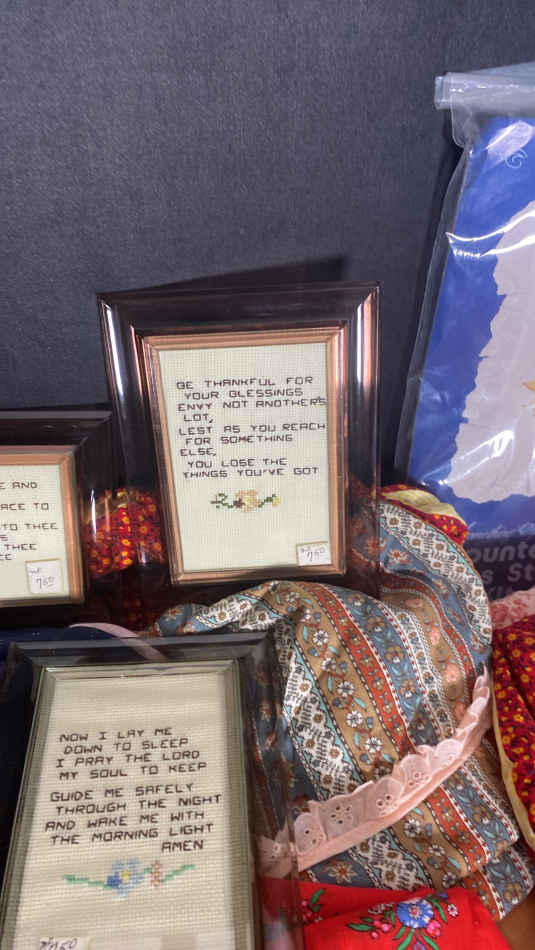 BE THANKFUL FOR
YOUR BLESSINGS
ENVY NOT ANOTHER'S
LOT,
LEST AS YOU REACH
FOR SOMETHING
ELSE,
YOU LOSE THE
THINGS YOU'VE GOT
7.50
E AND
ACE TO
TO THEE
S
THEE
EE
7.50
NOW I LAY ME
DOWN TO SLEEP
I PRAY THE LORD
MY SOUL TO KEEP
GUIDE ME SAFELY
THROUGH THE NIGHT
AND WAKE ME WITH
THE MORNING LIGHT
AMEN
7.50